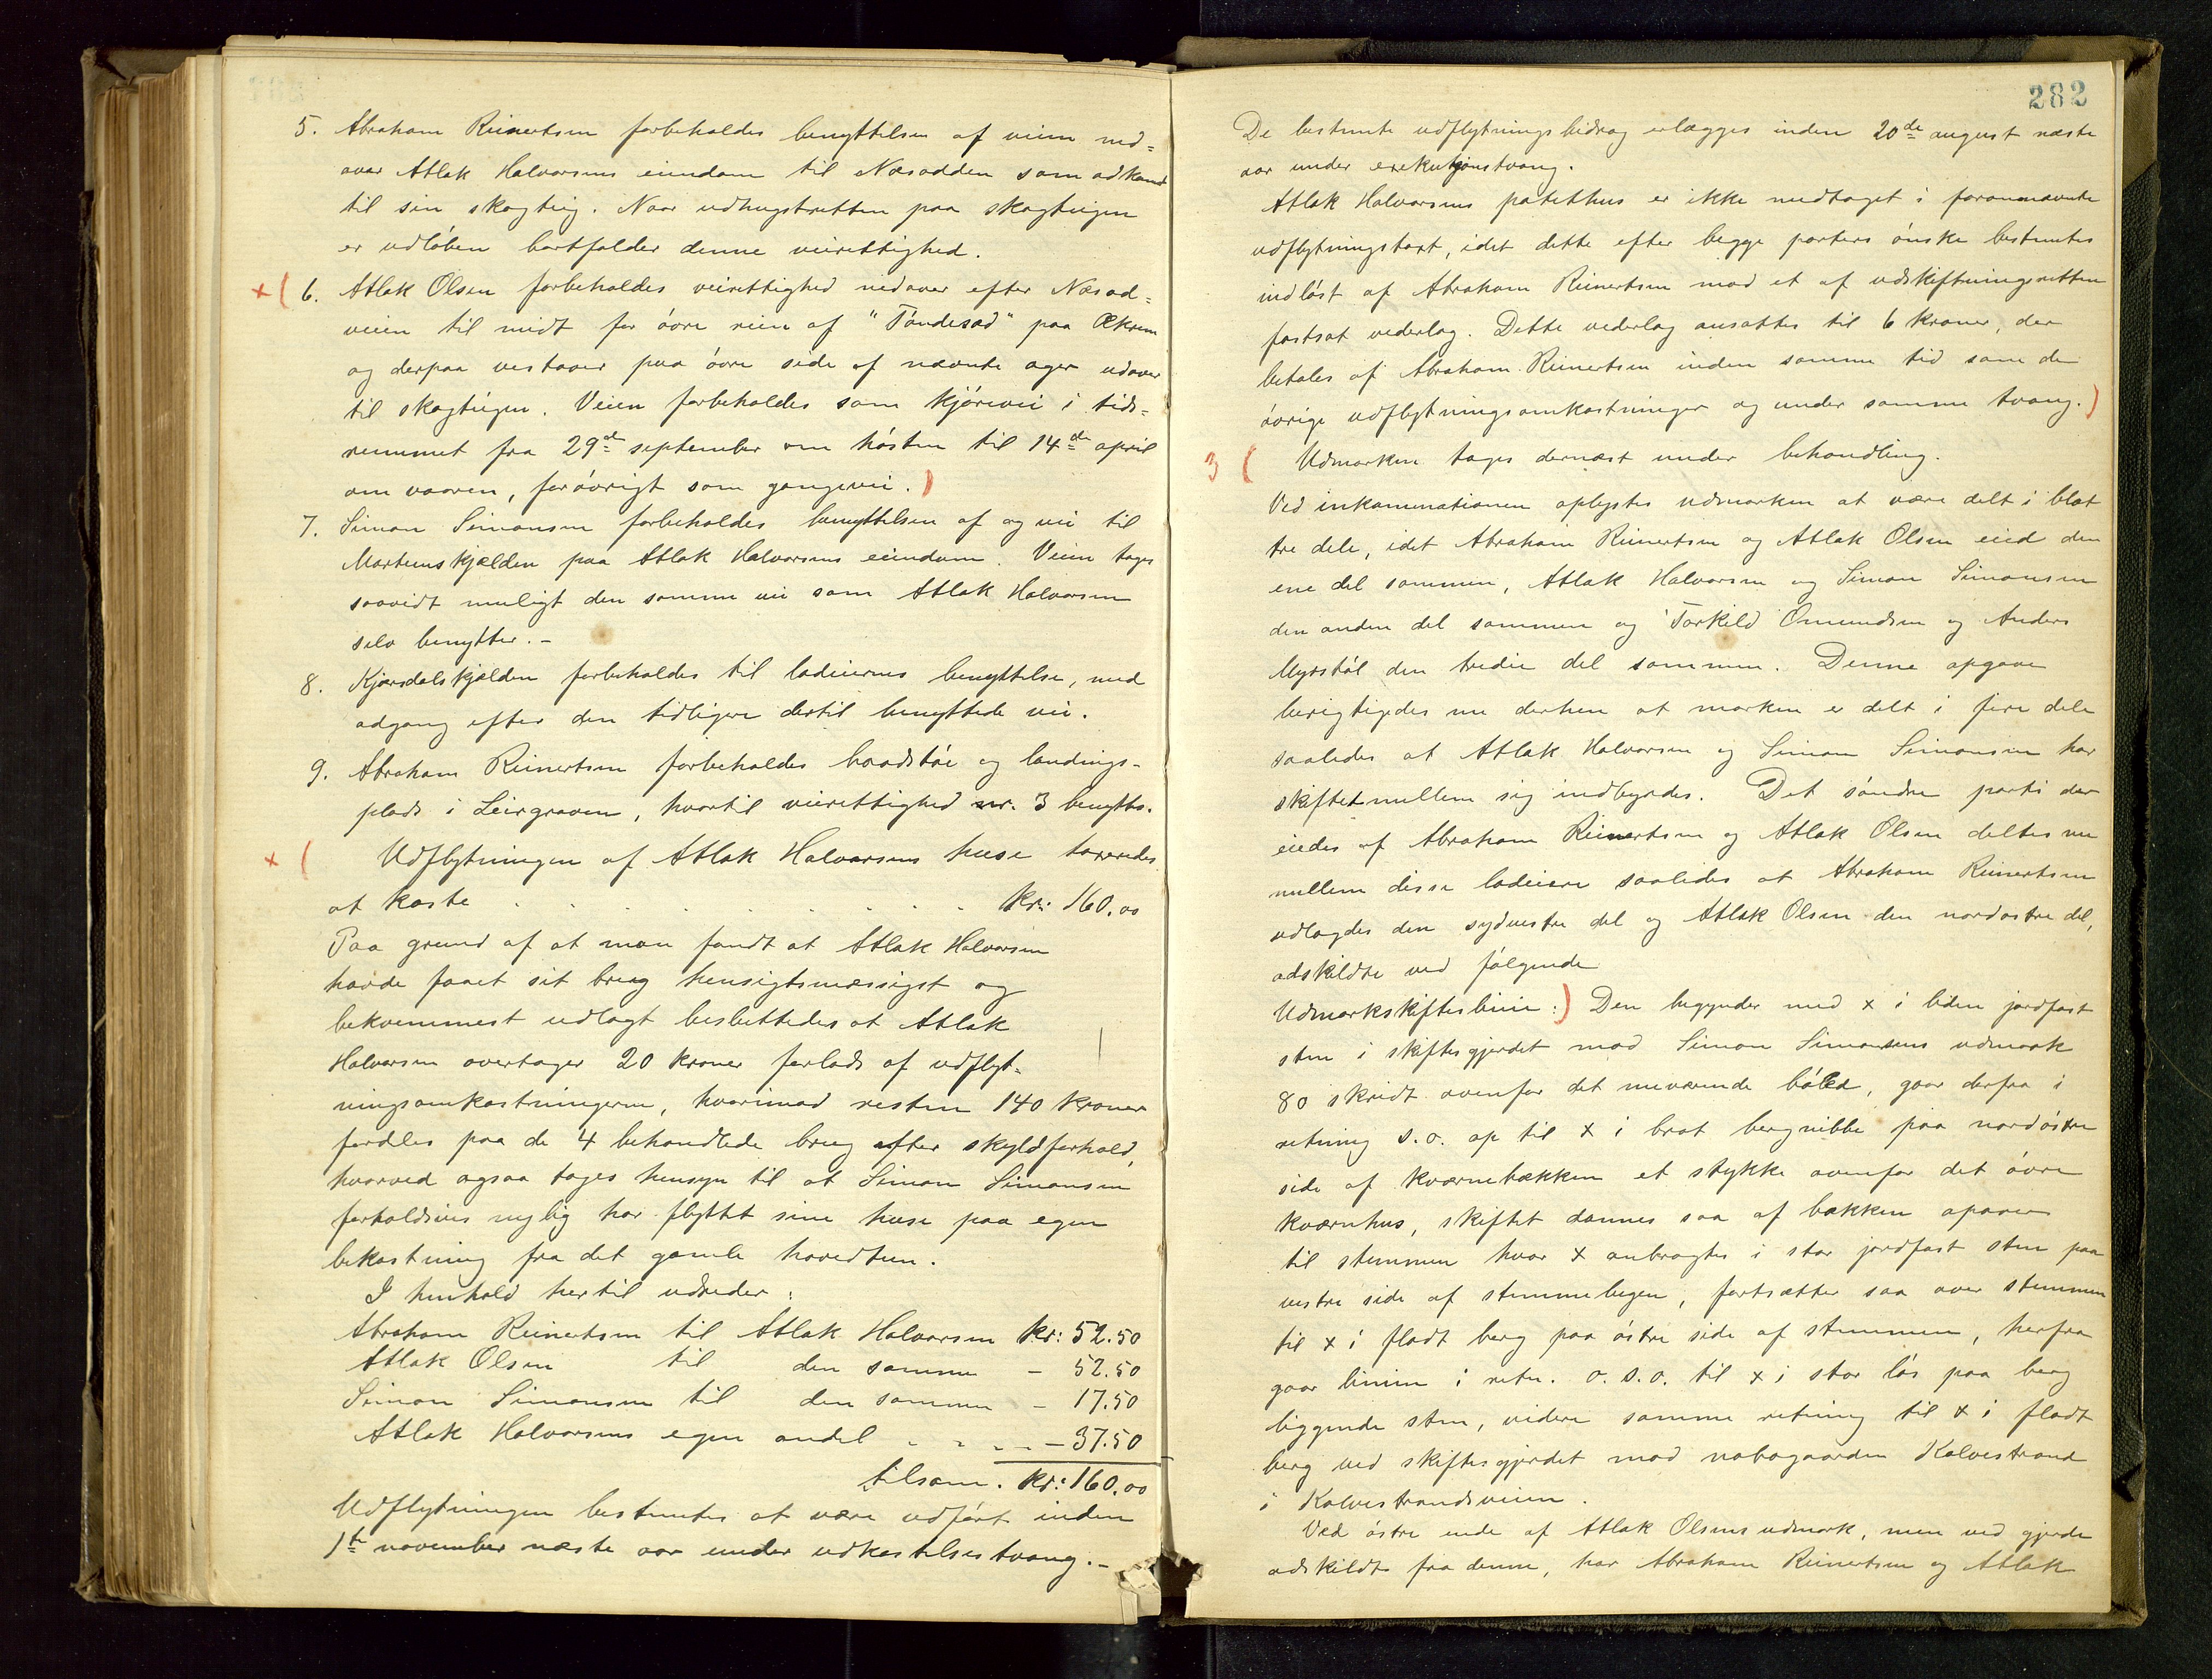 5. Abraham Reinertsen forbeholdes benyttelsen af veien ned-
over Atlak Halvorsens eiendom til Næsodden som adkomst
til sin skogteig. Naar udhugstretten paa skogteigen
er udløben bortfalder denne veirettighed.
× ( 6. Atlak Olsen forbeholdes veirettighed nedover efter Næsod-
veien til midt for øvre rein af "Tøndesæd" paa Ækren
og derpaa vestover paa øvre side af nævnte ager udover
til skogteigen. Veien forbeholdes som kjørevei i tids-
rummet fra 29de september om høsten til 14de april
om vaaren, forøvrigt som gangevei. )
7. Simon Simonsen forbeholdes benyttelsen af og vei til
Martenskjælden paa Atlak Halvorsens eiendom. Veien tages
saavidt muligt den samme vei som Atlak Halvorsen
selv benytter. -
8. Kjærsdalskjælden forbeholdes til lodeiernes benyttelse, med
adgang efter den tidligere dertil benyttede vei.
9. Abraham Reinertsen forbeholdes baadstøe og landings-
plads i Leirgraven, hvortil veirettighed nr. 3 benyttes.
× ( Udflytningen af Atlak Halvorsens huse taxeredes
at koste . . . . . . . . . kr: 160.00
Paa grund af at man fandt at Atlak Halvorsen
havde faaet sit brug hensigtsmæssigst og
bekvemmest udlagt besluttedes at Atlak
Halvorsen overtager 20 kroner forlods af udflyt-
ningsomkostningerne, hvorimod resten 140 kroner
fordeles paa de 4 behandlede brug efter skyldforhold,
hvorved ogsaa tages hensyn til at Simon Simonsen
forholdsvis nylig har flyttet sine huse paa egen
bekostning fra det gamle hovedtun.
I henhold hertil udreder:
Abraham Reinertsen til Atlak Halvorsen kr: 52.50
Atlak Olsen til den samme - 52.50
Simon Simonsen til den samme - 17.50
Atlak Halvorsens egen andel . . . . - 37.50
tilsam. kr: 160.00
Udflytningen bestemtes at være udført inden
1te november næste aar under udkastelsestvang. -
282
De bestemte udflytningsbidrag erlægges inden 20de august næste
aar under exekutionstvang.
Atlak Halvorsens potethus er ikke medtaget i forannævnte
udflytningstaxt, idet dette efter begge parters ønske bestemtes
indløst af Abraham Reinertsen mod et af udskiftningsretten
fastsat vederlag. Dette vederlag ansattes til 6 kroner, der
betales af Abraham Reinertsen inden samme tid som de
øvrige udflytningsomkostninger og under samme tvang. )
3 ( Udmarken tages dernæst under behandling.
Ved inkaminationen oplystes udmarken at være delt i blot
tre dele, idet Abraham Reinertsen og Atlak Olsen eied den
ene del sammen, Atlak Halvorsen og Simon Simonsen
den anden del sammen og Torkild Omundsen og Anders
Myrstøl den tredie del sammen. Denne opgave
berigtigedes nu derhen at marken er delt i fire dele
saaledes at Atlak Halvorsen og Simon Simonsen har
skiftet mellem sig indbyrdes. Det søndre parti der
eiedes af Abraham Reinertsen og Atlak Olsen deltes nu
mellem disse lodeiere saaledes at Abraham Reinertsen
udlagdes den sydvestre del og Atlak Olsen den nordostre del,
adskildte ved følgende
Udmarkskifteslinie: ) Den begynder med × i liden jordfast
sten i skiftesgjerdet mod Simon Simonsens udmark
80 skridt ovenfor det nuværende bøled, gaar derfra i
retning s.o. op til × i brat bergnibbe paa nordøstre
side af kværnebækken et stykke ovenfor det øvre
kværnhus, skiftet dannes saa af bækken opover
til stemmen hvor × anbragtes i stor jordfast sten paa
vestre side af stemmebugen, fortsætter saa over stemmen
til × i fladt berg paa østre side af stemmen, herfra
gaar linien i retn. o.s.o. til × i stor løs paa berg
liggende sten, videre samme retning til × i fladt
berg ved skiftesgjerdet mod nabogaarden Kalvestrand
i Kalvestrandsveien.
Ved østre ende af Atlak Olsens udmark, men ved gjerde
adskildt fra denne, har Abraham Reinertsen og Atlak